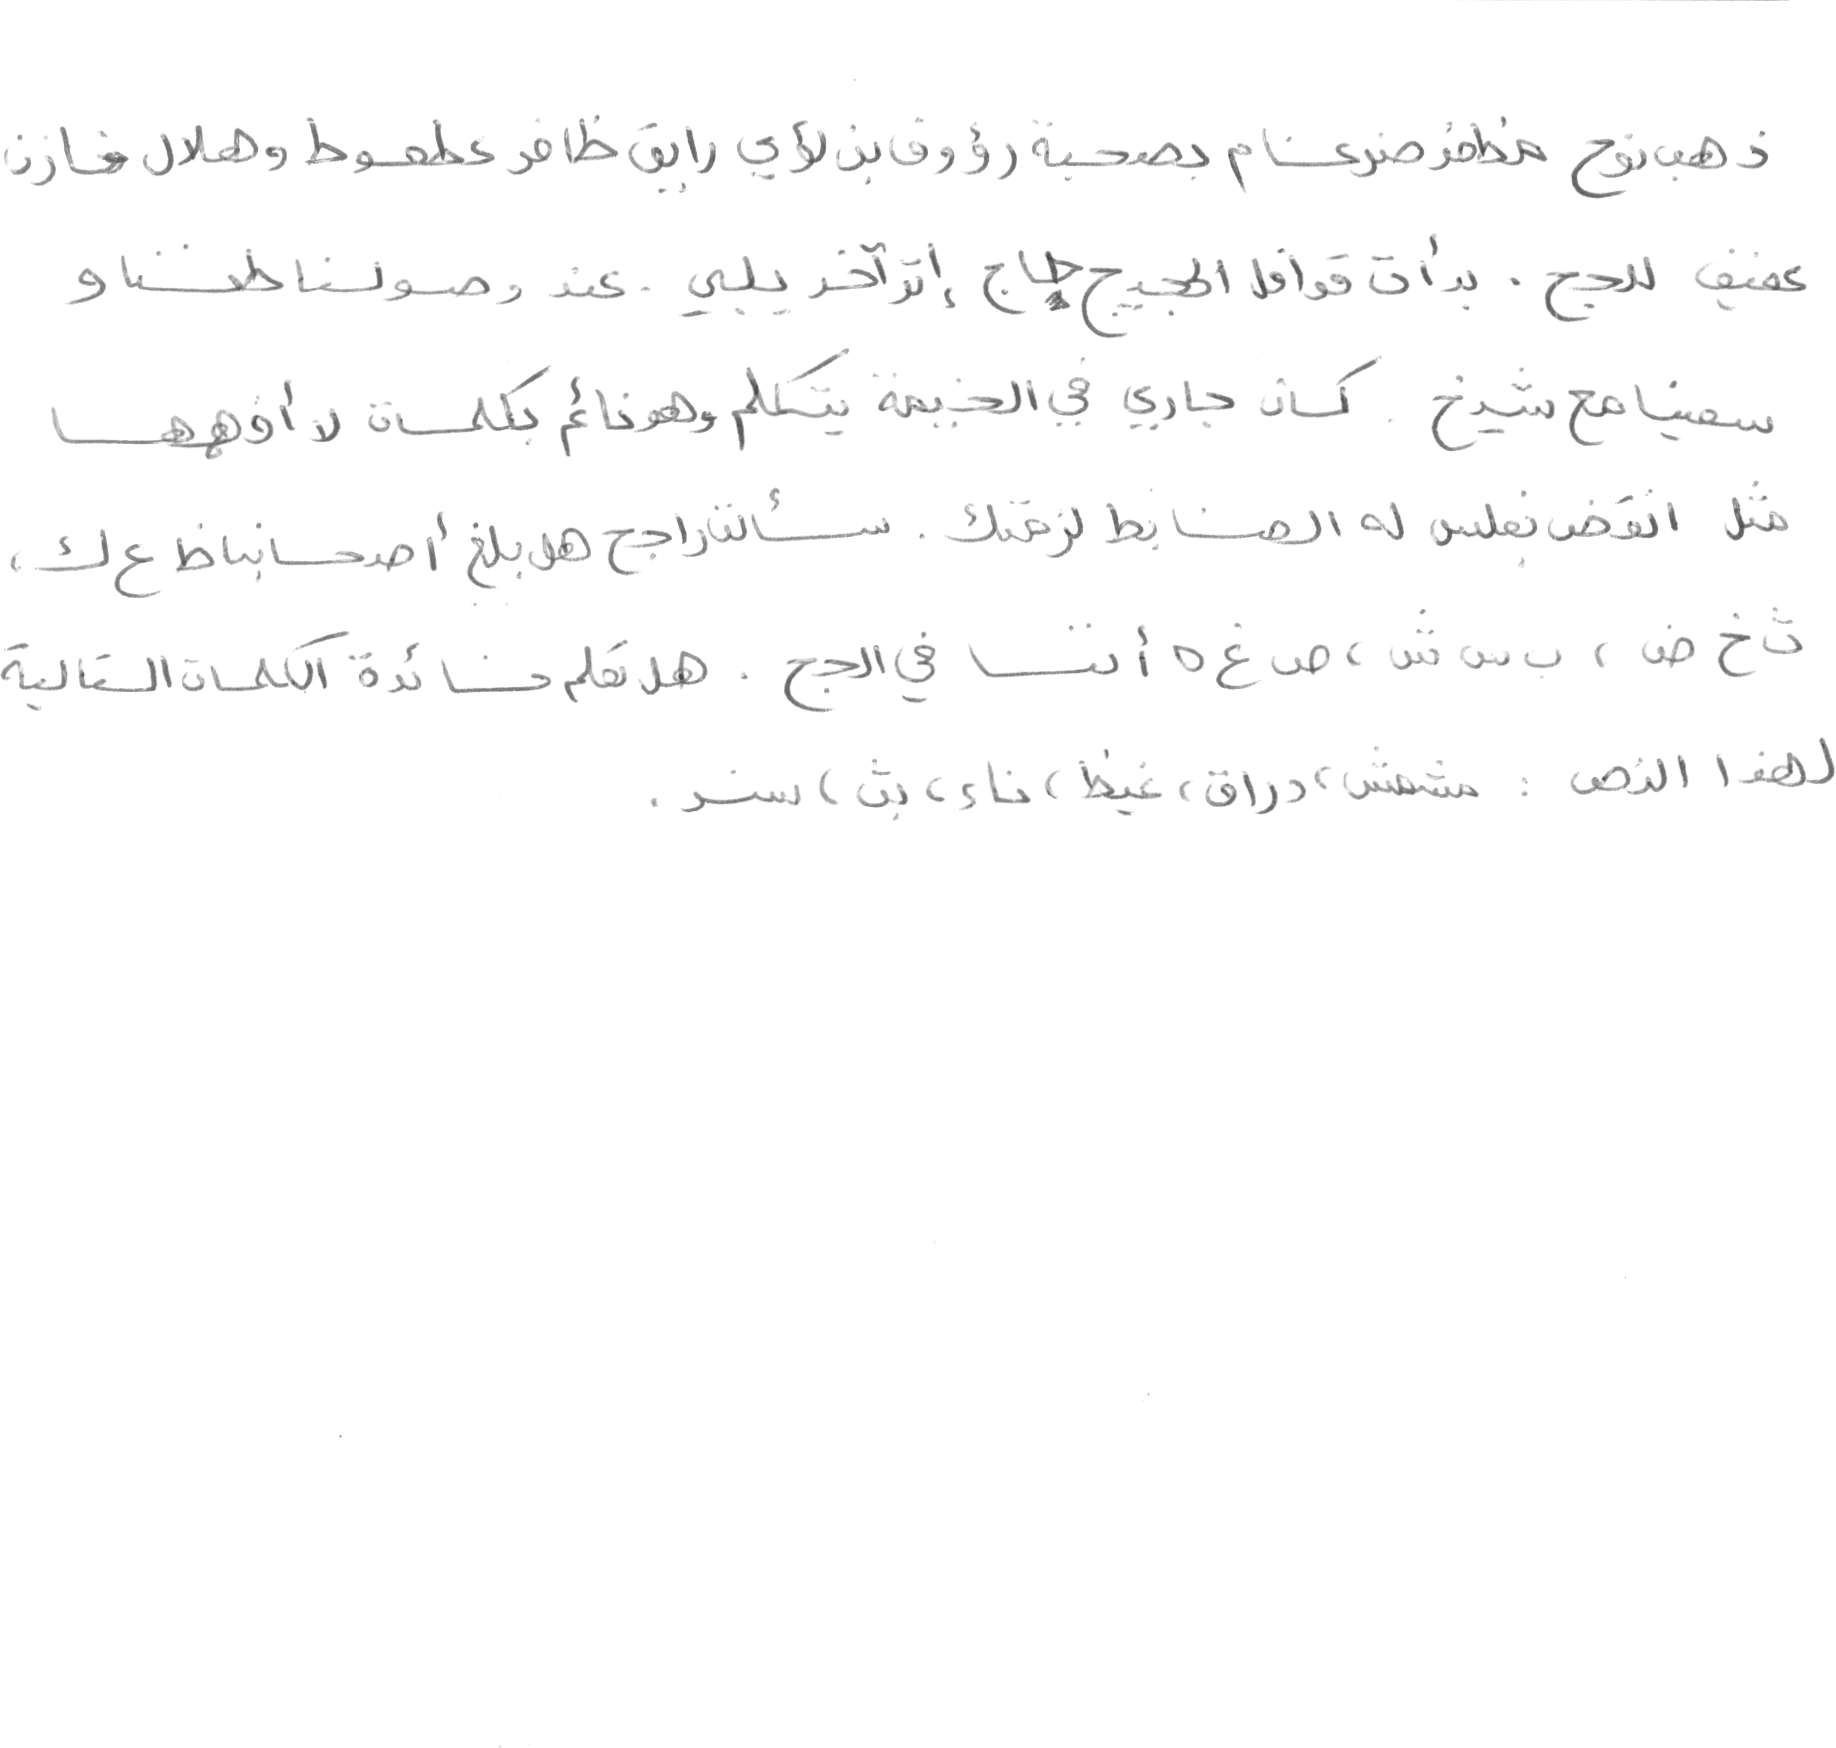 ذهب نوح مظفر ضرغام بصحبة رؤوف بن لؤي رايق ظافر عطعوط وهلال خازن
عفيف للحج . بدأت قوافل الحجيج حاج إثر آخر يلبي . عند وصولنا طفنا و
سعينا مع شيخ . كان جاري في الخيمة يتكلم وهو نائم بكلمات لا أفهمها
مثل انقض نفلس له الضابط لزقتك . سألت راجح هل بلغ أصحابنا ظ ع ك ،
ث خ ض ، ب س ش ، ص غ ه أننا في الحج . هل تعلم فائدة الكلمات التالية
لهذا النص : مشمش ، دراق ، غيظ ، ناء ، بث ، سند .